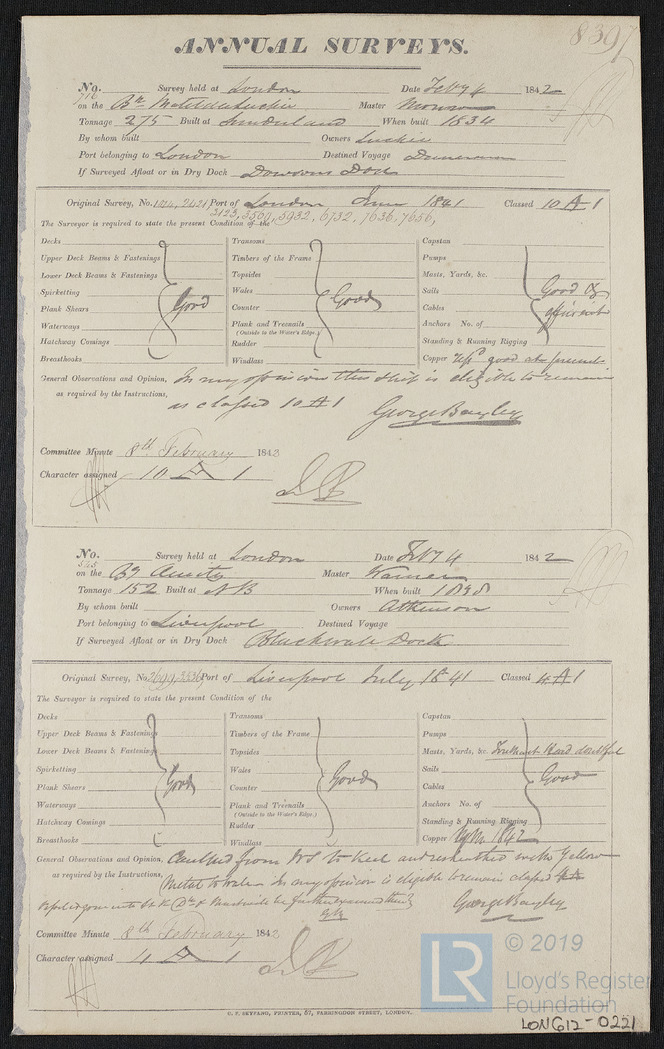 8397
ANNUAL SURVEYS.
No. 716 Survey held at London Date Feby 4 1842
on the Br. Matilda Luckie Master
Tonnage 275 Built at Sunderland When built 1834
By whom built Owners Luckie
Port belonging to London Destined Voyage
If Surveyed Afloat or in Dry Dock Dowsons Dock
Original Survey, No. 1874, 2421, Port of London June 1841 Classed 10 A 1
3123, 3504, 5932, 6732, 7636, 7656,
The Surveyor is required to state the present Condition of the
Decks Transoms Capstan
Upper Deck Beams & Fastenings Timbers of the Frame Pumps
Lower Deck Beams & Fastenings Topsides Masts, Yards, &c.
Spirketting Wales Sails Good &
Plank Shears Good Counter Good Cables efficient
Waterways Plank and Treenails (Outside to the Water's Edge.) Anchors No. of
Hatchway Comings Rudder Standing & Running Rigging
Breasthooks Windlass Copper repd good at present
General Observations and Opinion, In my opinion this ship is eligible to remain
as required by the Instructions, as classed 10 A 1
George Bayley
Committee Minute 8th February 1843
Character assigned 10 A 1
No. 545 Survey held at London Date Feby 4 1842
on the Bg Master
Tonnage 152 Built at N B When built 1838
By whom built Owners Atkinson
Port belonging to Liverpool Destined Voyage
If Surveyed Afloat or in Dry Dock Blackwall Dock
Original Survey, No. 2699-3536, Port of Liverpool July 1841 Classed 4 A 1
The Surveyor is required to state the present Condition of the
Decks Transoms Capstan
Upper Deck Beams & Fastenings Timbers of the Frame Pumps
Lower Deck Beams & Fastenings Topsides Masts, Yards, &c. Head doubtful
Spirketting Wales Sails Good
Plank Shears Good Counter Good Cables
Waterways Plank and Treenails (Outside to the Water's Edge.) Anchors No. of
Hatchway Comings Rudder Standing & Running Rigging
Breasthooks Windlass Copper 1842
General Observations and Opinion, Caulked from to Keel and resheathed with Yellow
as required by the Instructions, Metal to wales In my opinion is eligible to remain classed
George Bayley
Committee Minute 8th February 1842
Character assigned 4 A 1
C. F. SEYFANG, PRINTER, 57, FARRINGDON STREET, LONDON.
LR © 2019
Lloyd's Register
Foundation
LON612-0221